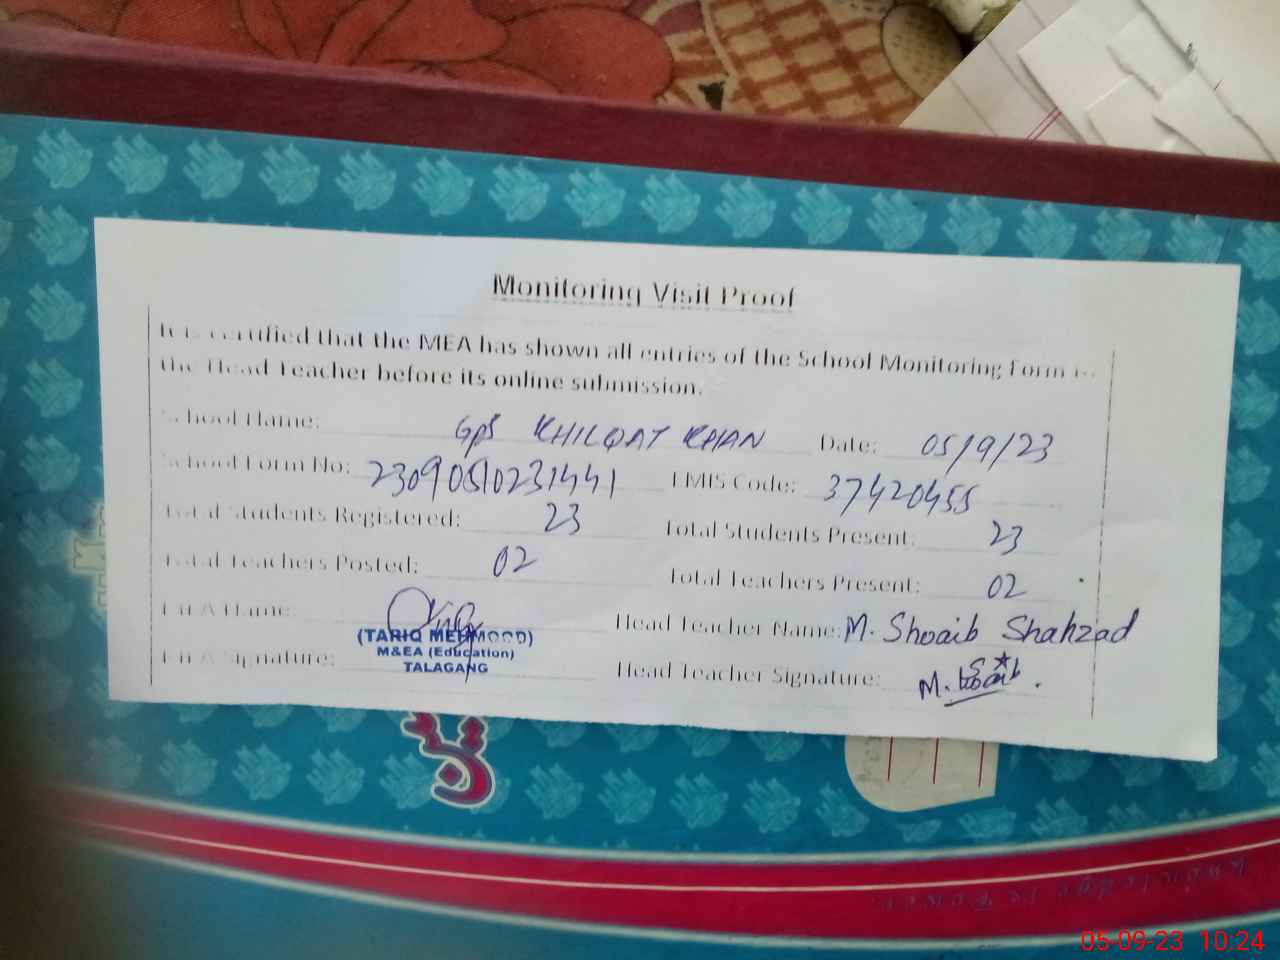 Monitoring Visit Proof
It is certified that the MEA has shown all entries of the School Monitoring Form to
the Head Teacher before its online submission.
School Name: GPS KHILQAT KHAN Date: 05/9/23
School Form No: 2309050231441 EMIS Code: 37420455
Total Students Registered: 23 Total Students Present: 23
Total Teachers Posted: 02 Total Teachers Present: 02
MEA Name: Head Teacher Name: M. Shoaib Shahzad
(TARIQ MEHMOOD)
M&EA (Education)
TALAGANG
MEA Signature: Head Teacher Signature: M. Shoaib.
Knowledge is Power
05-09-23 10:24